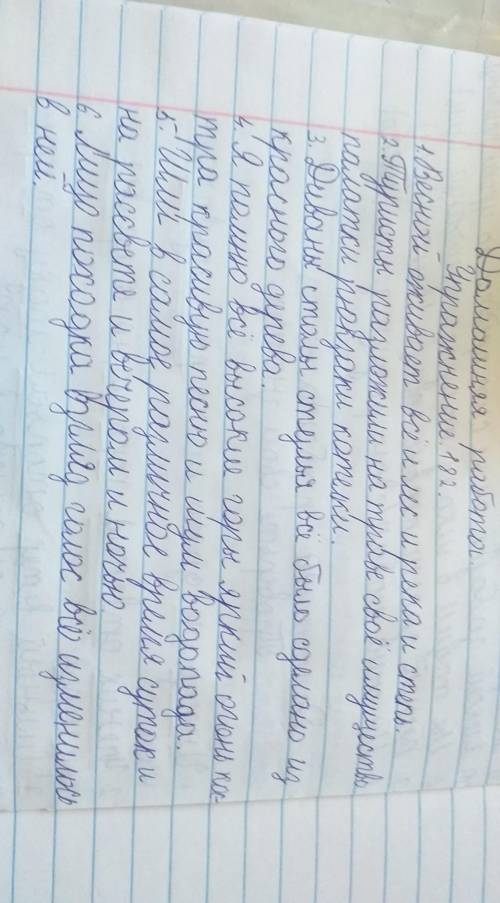 Домашняя работа.
Упражнение 182.
1. Весной оживает всё и лес и река и степь.
2. Туристы разложили на траве своё имущество
палатки рюкзаки котелки.
3. Диваны столы стулья всё было сделано из
красного дерева.
4. Я помню всё высокие горы яркий огонь кос-
тра красивую песню и шум водопада.
5. Шли в самое различное время суток и
на рассвете и вечером и ночью.
6. Лицо походка взгляд голос всё изменилось
в ней.